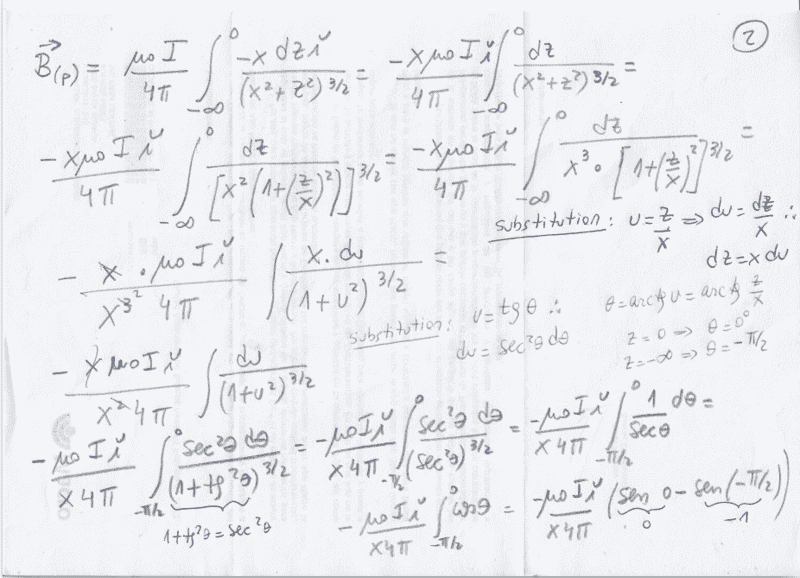 ②
B⃗(p) = μo I / 4π ∫_{-∞}^{0} -x dz ĭ / (x² + z²)^{3/2} = -x μo I ĭ / 4π ∫_{-∞}^{0} dz / (x² + z²)^{3/2} =
-x μo I ĭ / 4π ∫_{-∞}^{0} dz / [x² (1+(z/x)²)]^{3/2} = -x μo I ĭ / 4π ∫_{-∞}^{0} dz / x³ • [1+(z/x)²]^{3/2} =
substitution: u = z/x ⇒ du = dz/x ∴
dz = x du
- x • μo I ĭ / x³² 4π ∫ x. du / (1+u²)^{3/2} =
substitution: u = tg θ ∴ θ = arctg u = arctg z/x
du = sec²θ dθ z = 0 ⇒ θ = 0°
z = -∞ ⇒ θ = -π/2
- x μo I ĭ / x² 4π ∫ du / (1+u²)^{3/2}
- μo I ĭ / x 4π ∫_{-π/2}^{0} sec²θ dθ / (1+tg²θ)^{3/2} = -μo I ĭ / x 4π ∫_{-π/2}^{0} sec²θ dθ / (sec²θ)^{3/2} = -μo I ĭ / x 4π ∫_{-π/2}^{0} 1/secθ dθ =
1+tg²θ = sec²θ
- μo I ĭ / x 4π ∫_{-π/2}^{0} cosθ = -μo I ĭ / x 4π (sen 0 - sen(-π/2))
0 -1